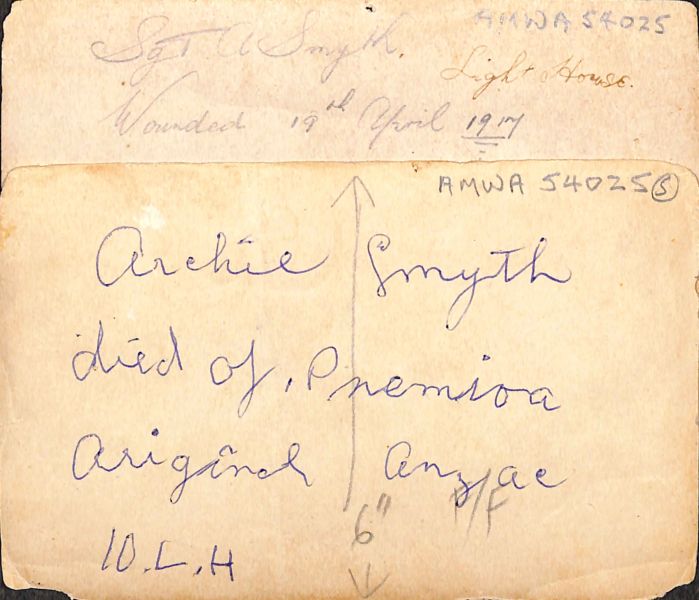 AMWA 54025
Sgt A Smyth.
Light House.
Wounded 19th April 1917
AMWA 54025 (5)
Archie Smyth
died of, Pnemioa
Ariginel Anzac
P/F
6"
10.L.H